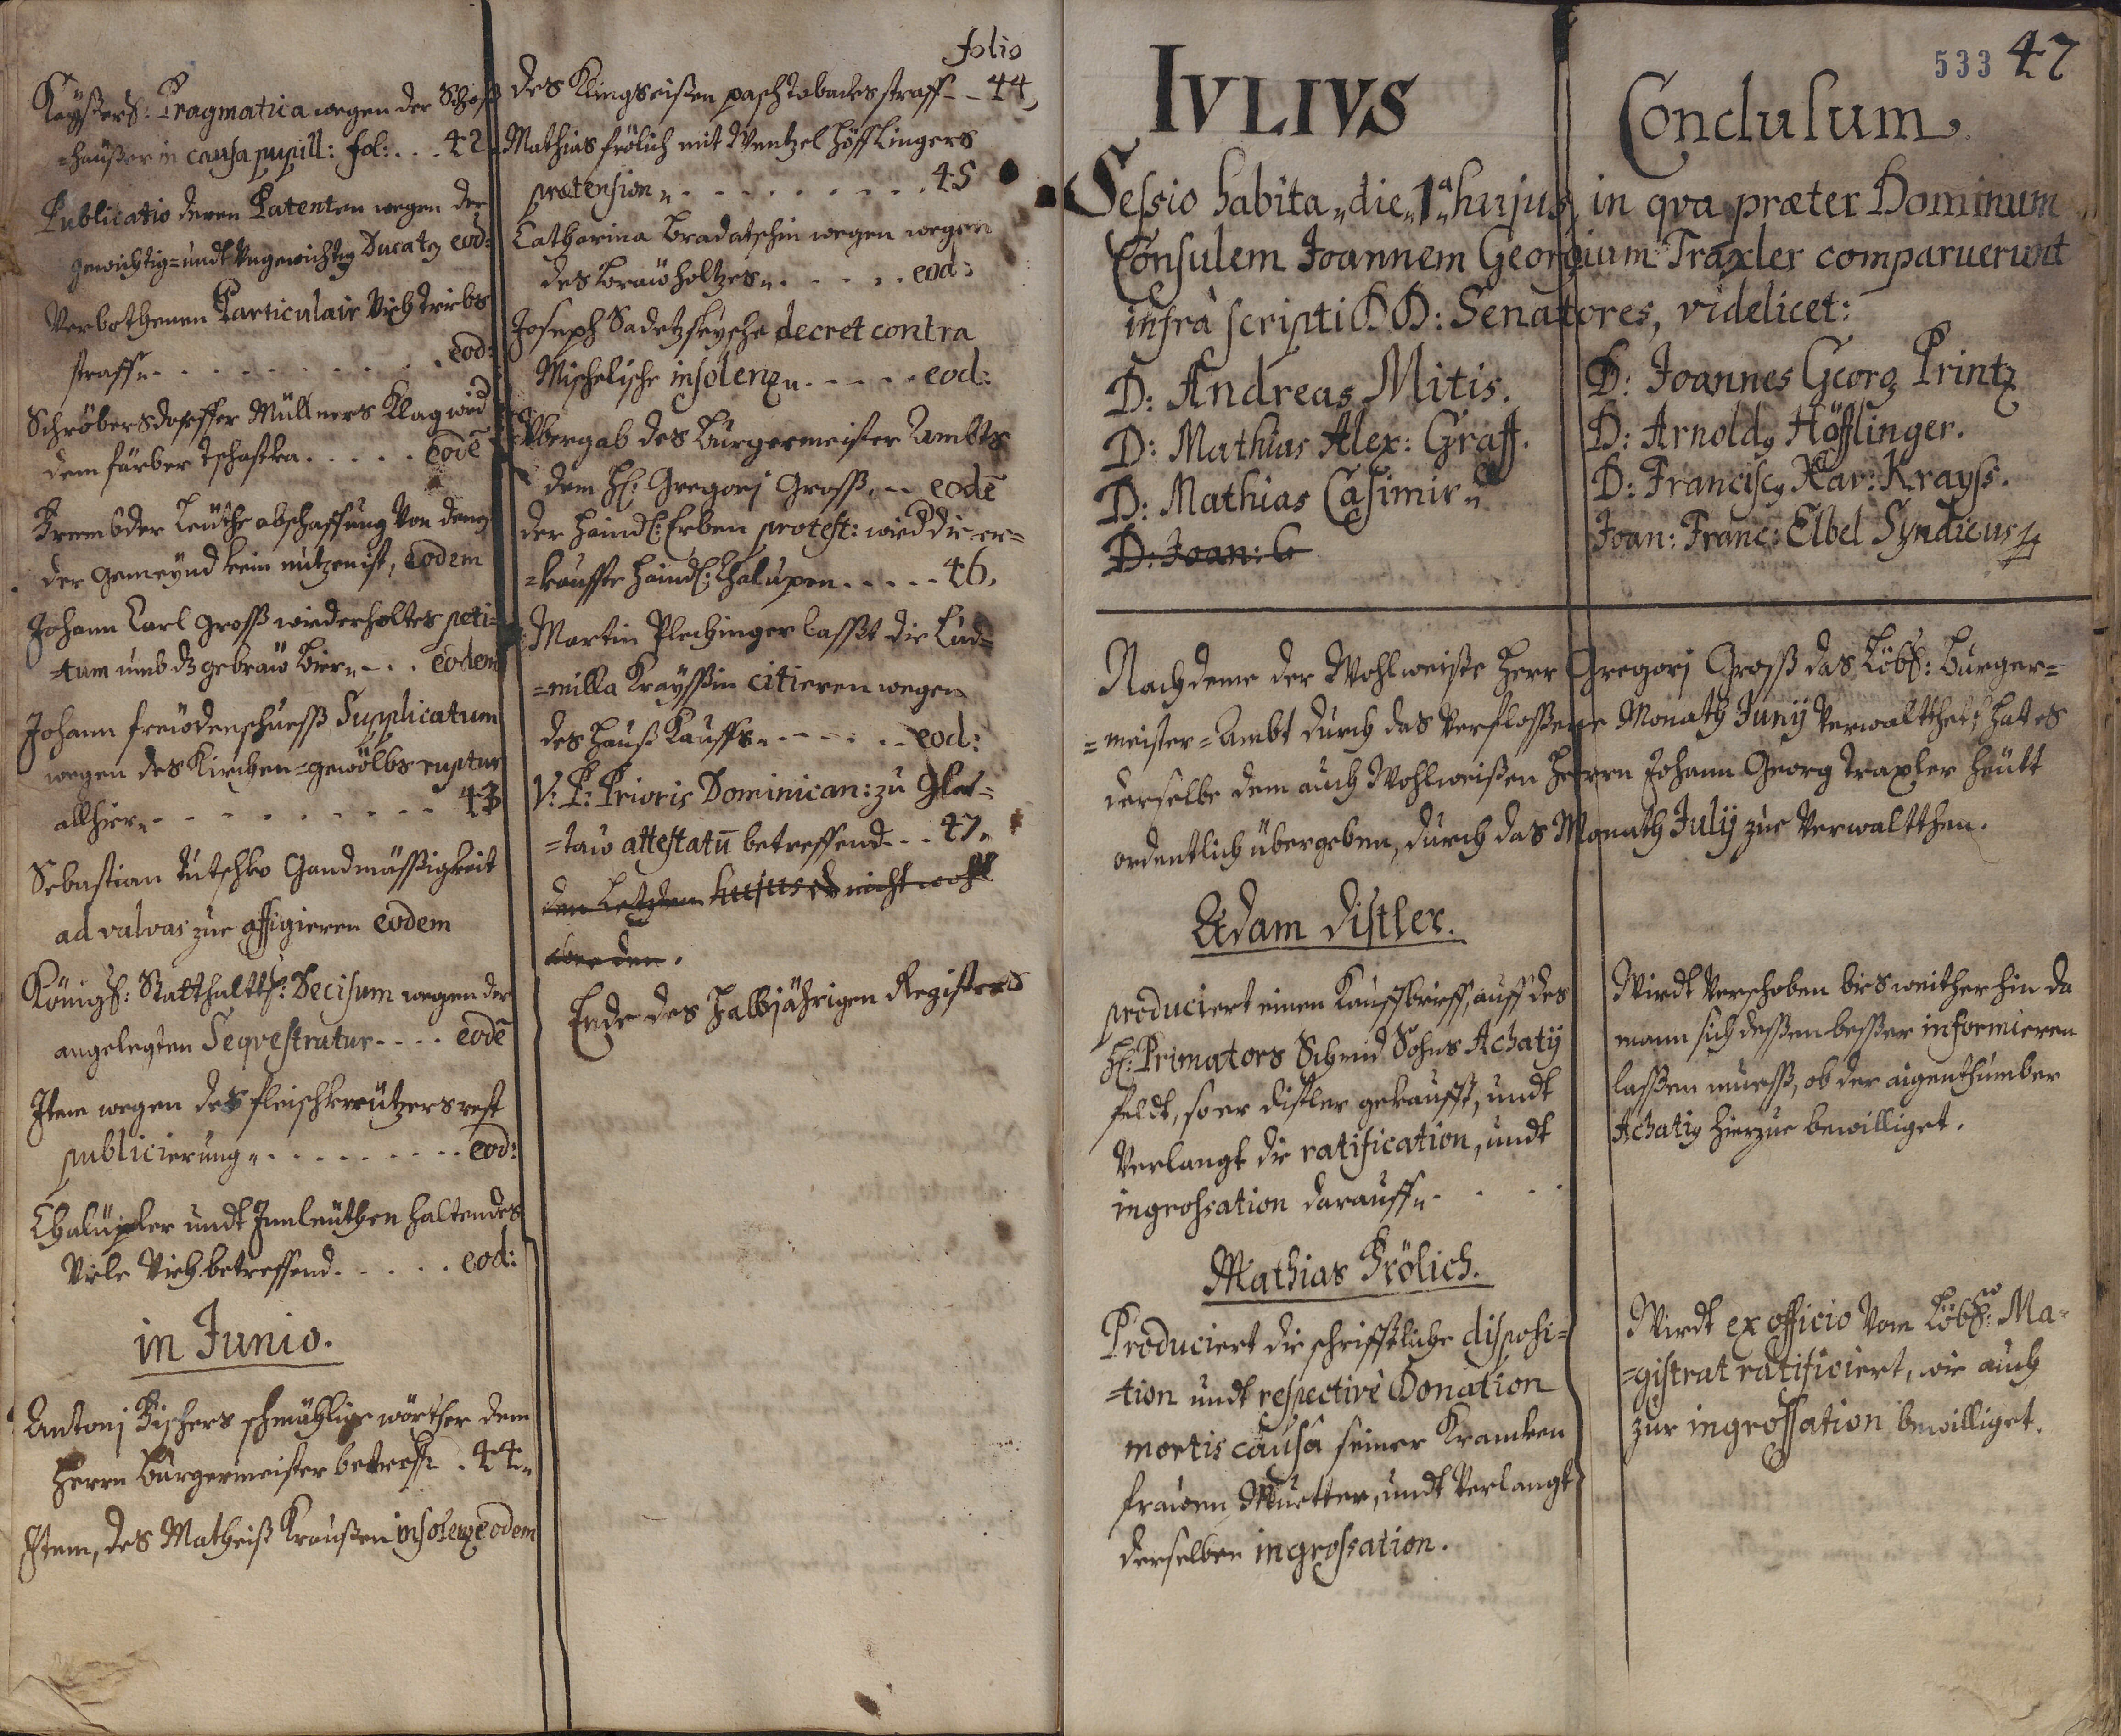 Kaÿßerl: Pragmatica wegen der Schoß
=haüßer in causa pupill: fol: . . . 42.
Publicatio deren Patenten wegen der
gewichtig= undt ungewichtig Ducatẽ eod:
Verbothenen Particulair Viehtriebs
straff . . . . . . . . . . eod:
Schröbersdorffer Müllners Klag wid
dem färber Tschastka . . . . . eodē
Frembder Leuthe abschaffung von denen
der Gemeÿnd kein nutzen ist, eodem
Johann Carl Groß wiederholtes peti=
=tum umb dz gebraw bier . . . eodem
Johann freüdenschueß Supplicatum
wegen des Kirchen=gewölbs ruptur
allhier . . . . . . . . . . 43
Sebastian Tutschko Gandmäßigkeit
ad valvas zue affigieren eodem
Königl: Statthaltl: Decisum wegen der
angelegten Seqvestratur . . . . eodē
Item wegen des fleischkreützers rest
publicierung . . . . . . . . . eod:
Chalupler undt Innleuthen haltendes
viele Vieh betreffend . . . . . eod:
in Junio.
Antonj Fischers schmählige wörther dem
Herrn Burgermeister betreff: . 44.
Item, des Matheiß Kraußen insolenz eodem
folio
des Klingseißen pasch tobackes straff . . 44,
Mathias frölich mit Wentzel Höfflingers
prætension . . . . . . . . . . 45
Catharina Bradatschin wegen wegen
des brawholtzes . . . . . . eod:
Joseph Sadetzkysche decret contra
Mischelische insolenz . . . . . eod:
Übergab des Burgermeister Ambts
dem H: Gregorj Groß . . eodē
der Haindl: Erben protest: wied die er=
=kauffte Haindl: Chalupen . . . . . 46.
Martin Plechinger lasset die Lud=
=milla Kraÿssin citieren wegen
des hauß Kauffs . . . . . . eod:
V: P: Prioris Dominican: zu Glat=
=taw attestatū betreffend . . . 47.
den Letzten hujus nicht
.
Ende des Halbjährigen Registers
533 47
IVLIVS
Conclusum
Sessio habita „die „1ᵃ hujus, in qva præter Dominum
Consulem Joannem Georgium Traxler comparuerunt
infrà scripti DD: Senatores, videlicet:
D: Andreas Mitis.
D: Mathias Alex: Graff.
D: Mathias Casimir
D: Joan: G
D: Joannes Georg Printz
D: Arnoldg Höfflinger.
D: Franciscg Xav: Krayss.
Joan: Franc: Elbel Syndicus
Nachdeme der Wohlweiße Herr Gregorj Groß das Löbl: Burger=
=meister=Ambt durch das verfloßene Monath Junÿ verwalthet, hat es
derselbe dem auch Wohlweißen Herrn Johann Georg Traxler heüth
ordentlich übergeben, durch das Monath Julÿ zue verwaltthen.
Adam Distler.
produciert einen Kauffbrieff, auff des
H: Primators Schmid Sohns Achatÿ
feldt, so er Distler gekaufft, undt
verlangt die ratification, undt
ingrossation darauff . . .
Wirdt verschoben bies weither hin da
mann sich deßen beßer informieren
laßen mueß, ob der aigenthumber
Achatig hierzue bewilliget.
Mathias Frölich.
Produciert die schrifftliche disposi=
=tion undt respectivè Donation
mortis causa seiner Krancken
frauen Muetter, undt verlangt
derselben ingrossation.
Wirdt ex officio vom Löbl: Ma=
=gistrat ratificiert, wie auch
zur ingrossation bewilliget.